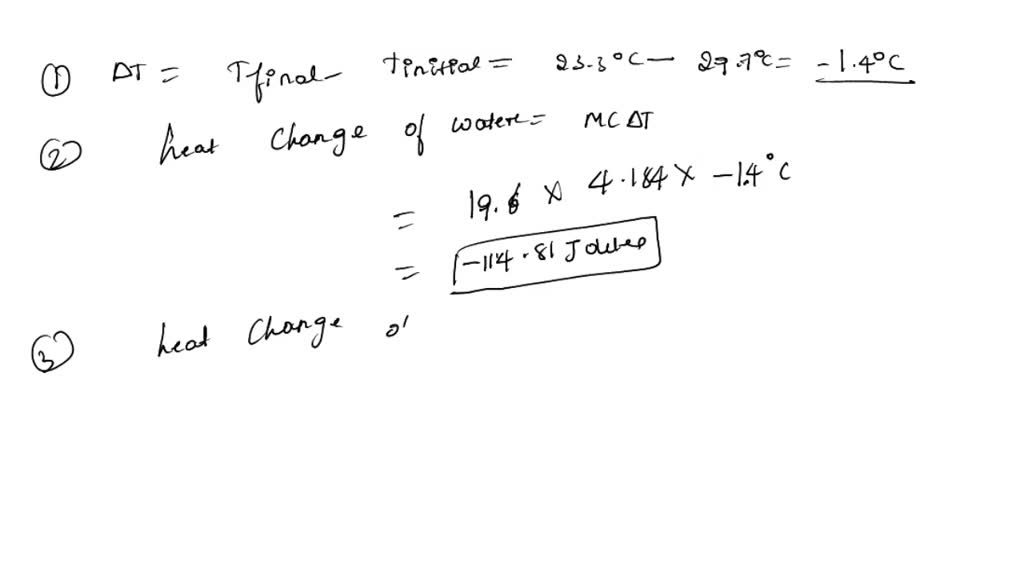 ① ΔT = Tfinal - tinitial = 23.3°C - 29.7°C = -1.4°C
② heat change of water = MCΔT
= 19.6 × 4.184 × -1.4°C
= -114.81 J
③ heat change o'